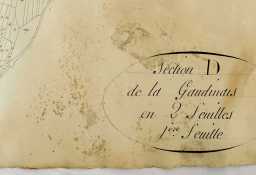 Section D
de la Gaudinais
en 2 Feuilles
1ère Feuille